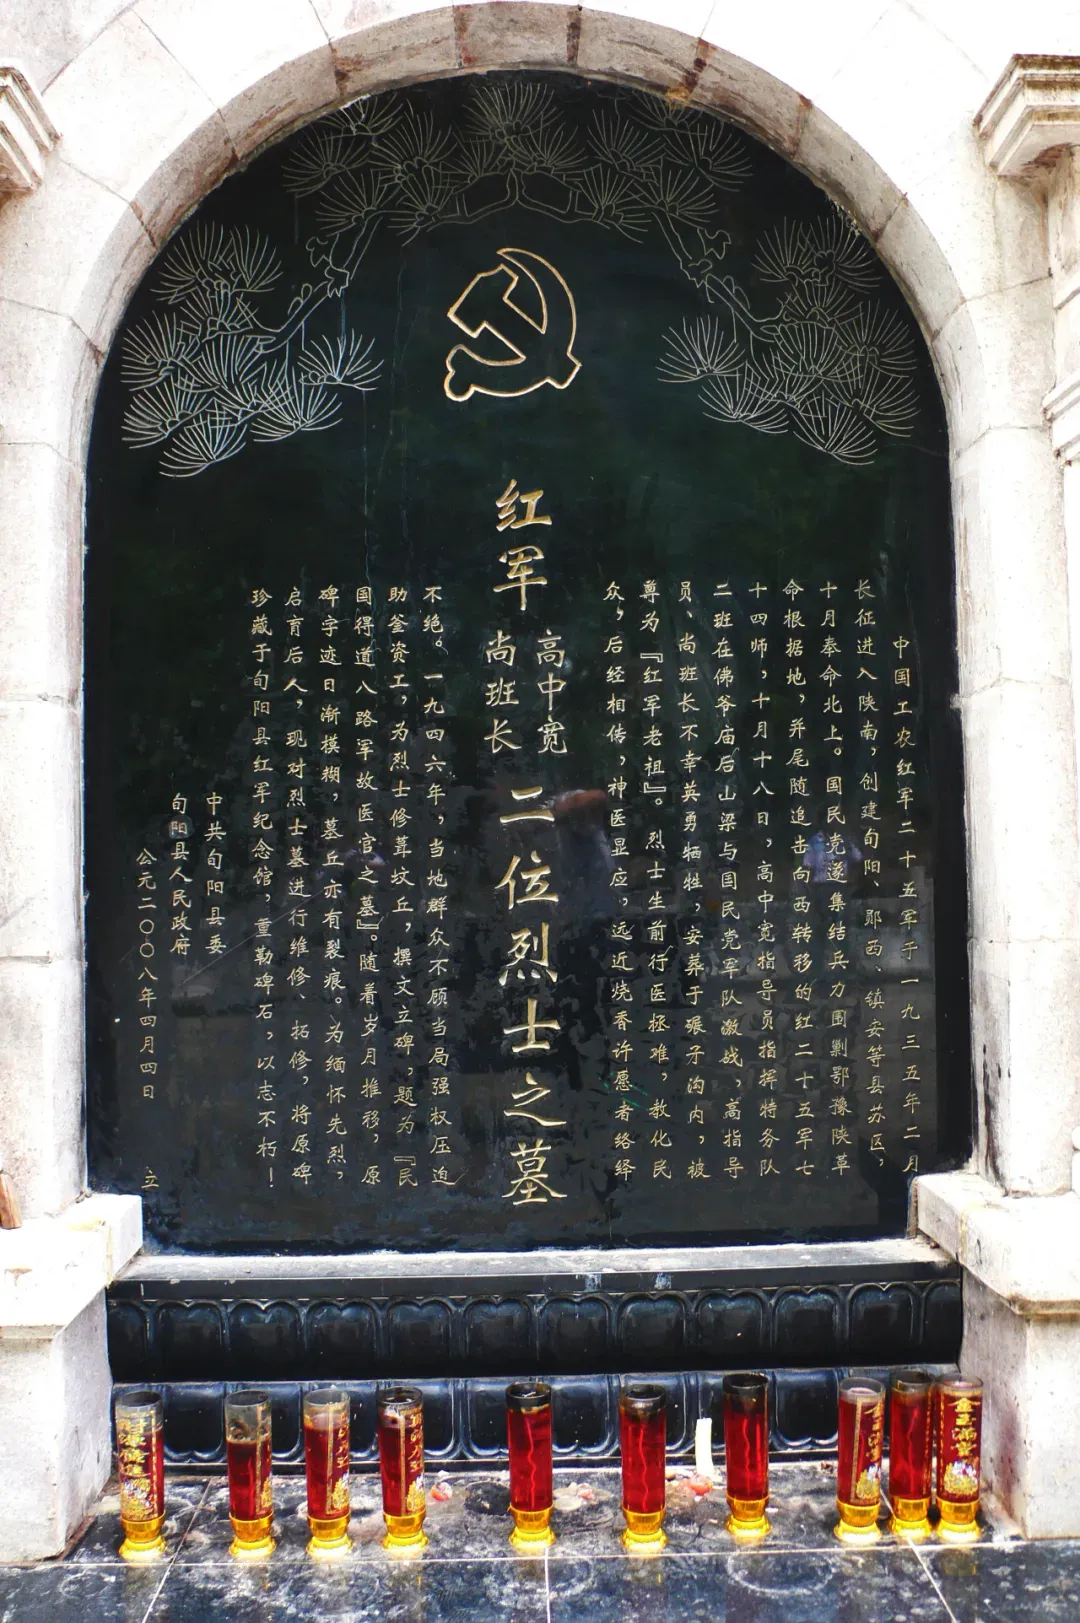 中国工农红军二十五军于一九三五年二月
长征进入陕南，创建旬阳、郧西、镇安等县苏区，
十月奉命北上。国民党遂集结兵力围剿鄂豫陕革
命根据地，并尾随追击向西转移的红二十五军七
十四师，十月十八日，高中宽指导员指挥特务队
二班在佛爷庙后山梁与国民党军队激战，高指导
员、尚班长不幸英勇牺牲，安葬于碾子沟内，被
尊为『红军老祖』。烈士生前行医拯难，教化民
众，后经相传，神医显应，远近烧香许愿者络绎
红军
高中宽
尚班长
二位烈士之墓
不绝。一九四六年，当地群众不顾当局强权压迫
助釜资工，为烈士修葺坟丘，撰文立碑，题为『民
国得道八路军故医官之墓』。随着岁月推移，原
碑字迹日渐模糊，墓丘亦有裂痕。为缅怀先烈，
启育后人，现对烈士墓进行维修、拓修，将原碑
珍藏于旬阳县红军纪念馆，重勒碑石，以志不朽！
中共旬阳县委
旬阳县人民政府
公元二〇〇八年四月四日 立
金玉满堂